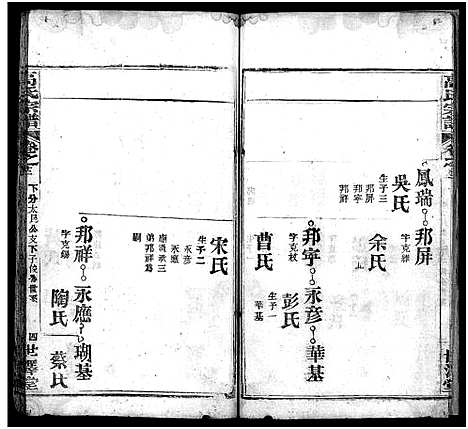 高氏宗譜
卷之
鳳瑞 邦屏
吳氏
生子三
邦屏
邦寧
邦祥
字克
余氏
邦寧 永彦 華基
字克
曹氏
彭氏
生子一
華基
宋氏
生子二
永彦
永應
永應承三
弟邦祥為
嗣
邦祥 永應 瑚基
字克錫
陶氏
蔡氏
高氏宗譜
卷之
下分太
公支下子
世系
四
世澤堂